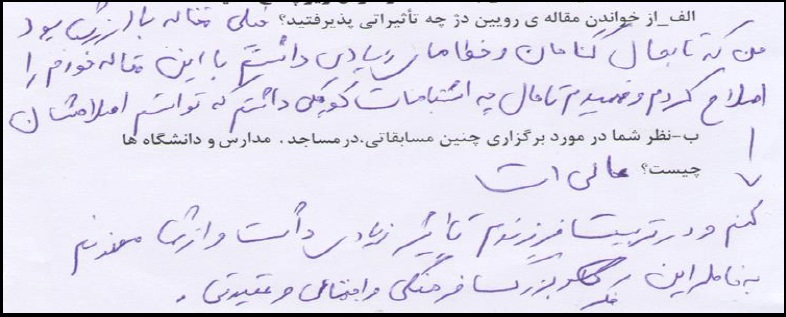 الف_از خواندن مقاله ی رویین دژ چه تأثیراتی پذیرفتید؟ خیلی مقاله با ارزشی بود
من که تا بحال گناهان و خطاهای زیادی داشتم با این مقاله خودم را
اصلاح کردم و فهمیدم تا حال چه اشتباهات کوچکی داشتم که توانستم اصلاحشان
ب-نظر شما در مورد برگزاری چنین مسابقاتی.درمساجد . مدارس و دانشگاه ها
چیست؟ عالی است
کنم و در تربیت فرزندم تأثیر زیادی داشت و از شما ممنونم
به خاطر این بزرگ فرهنگی و اجتماعی و عقیدتی .